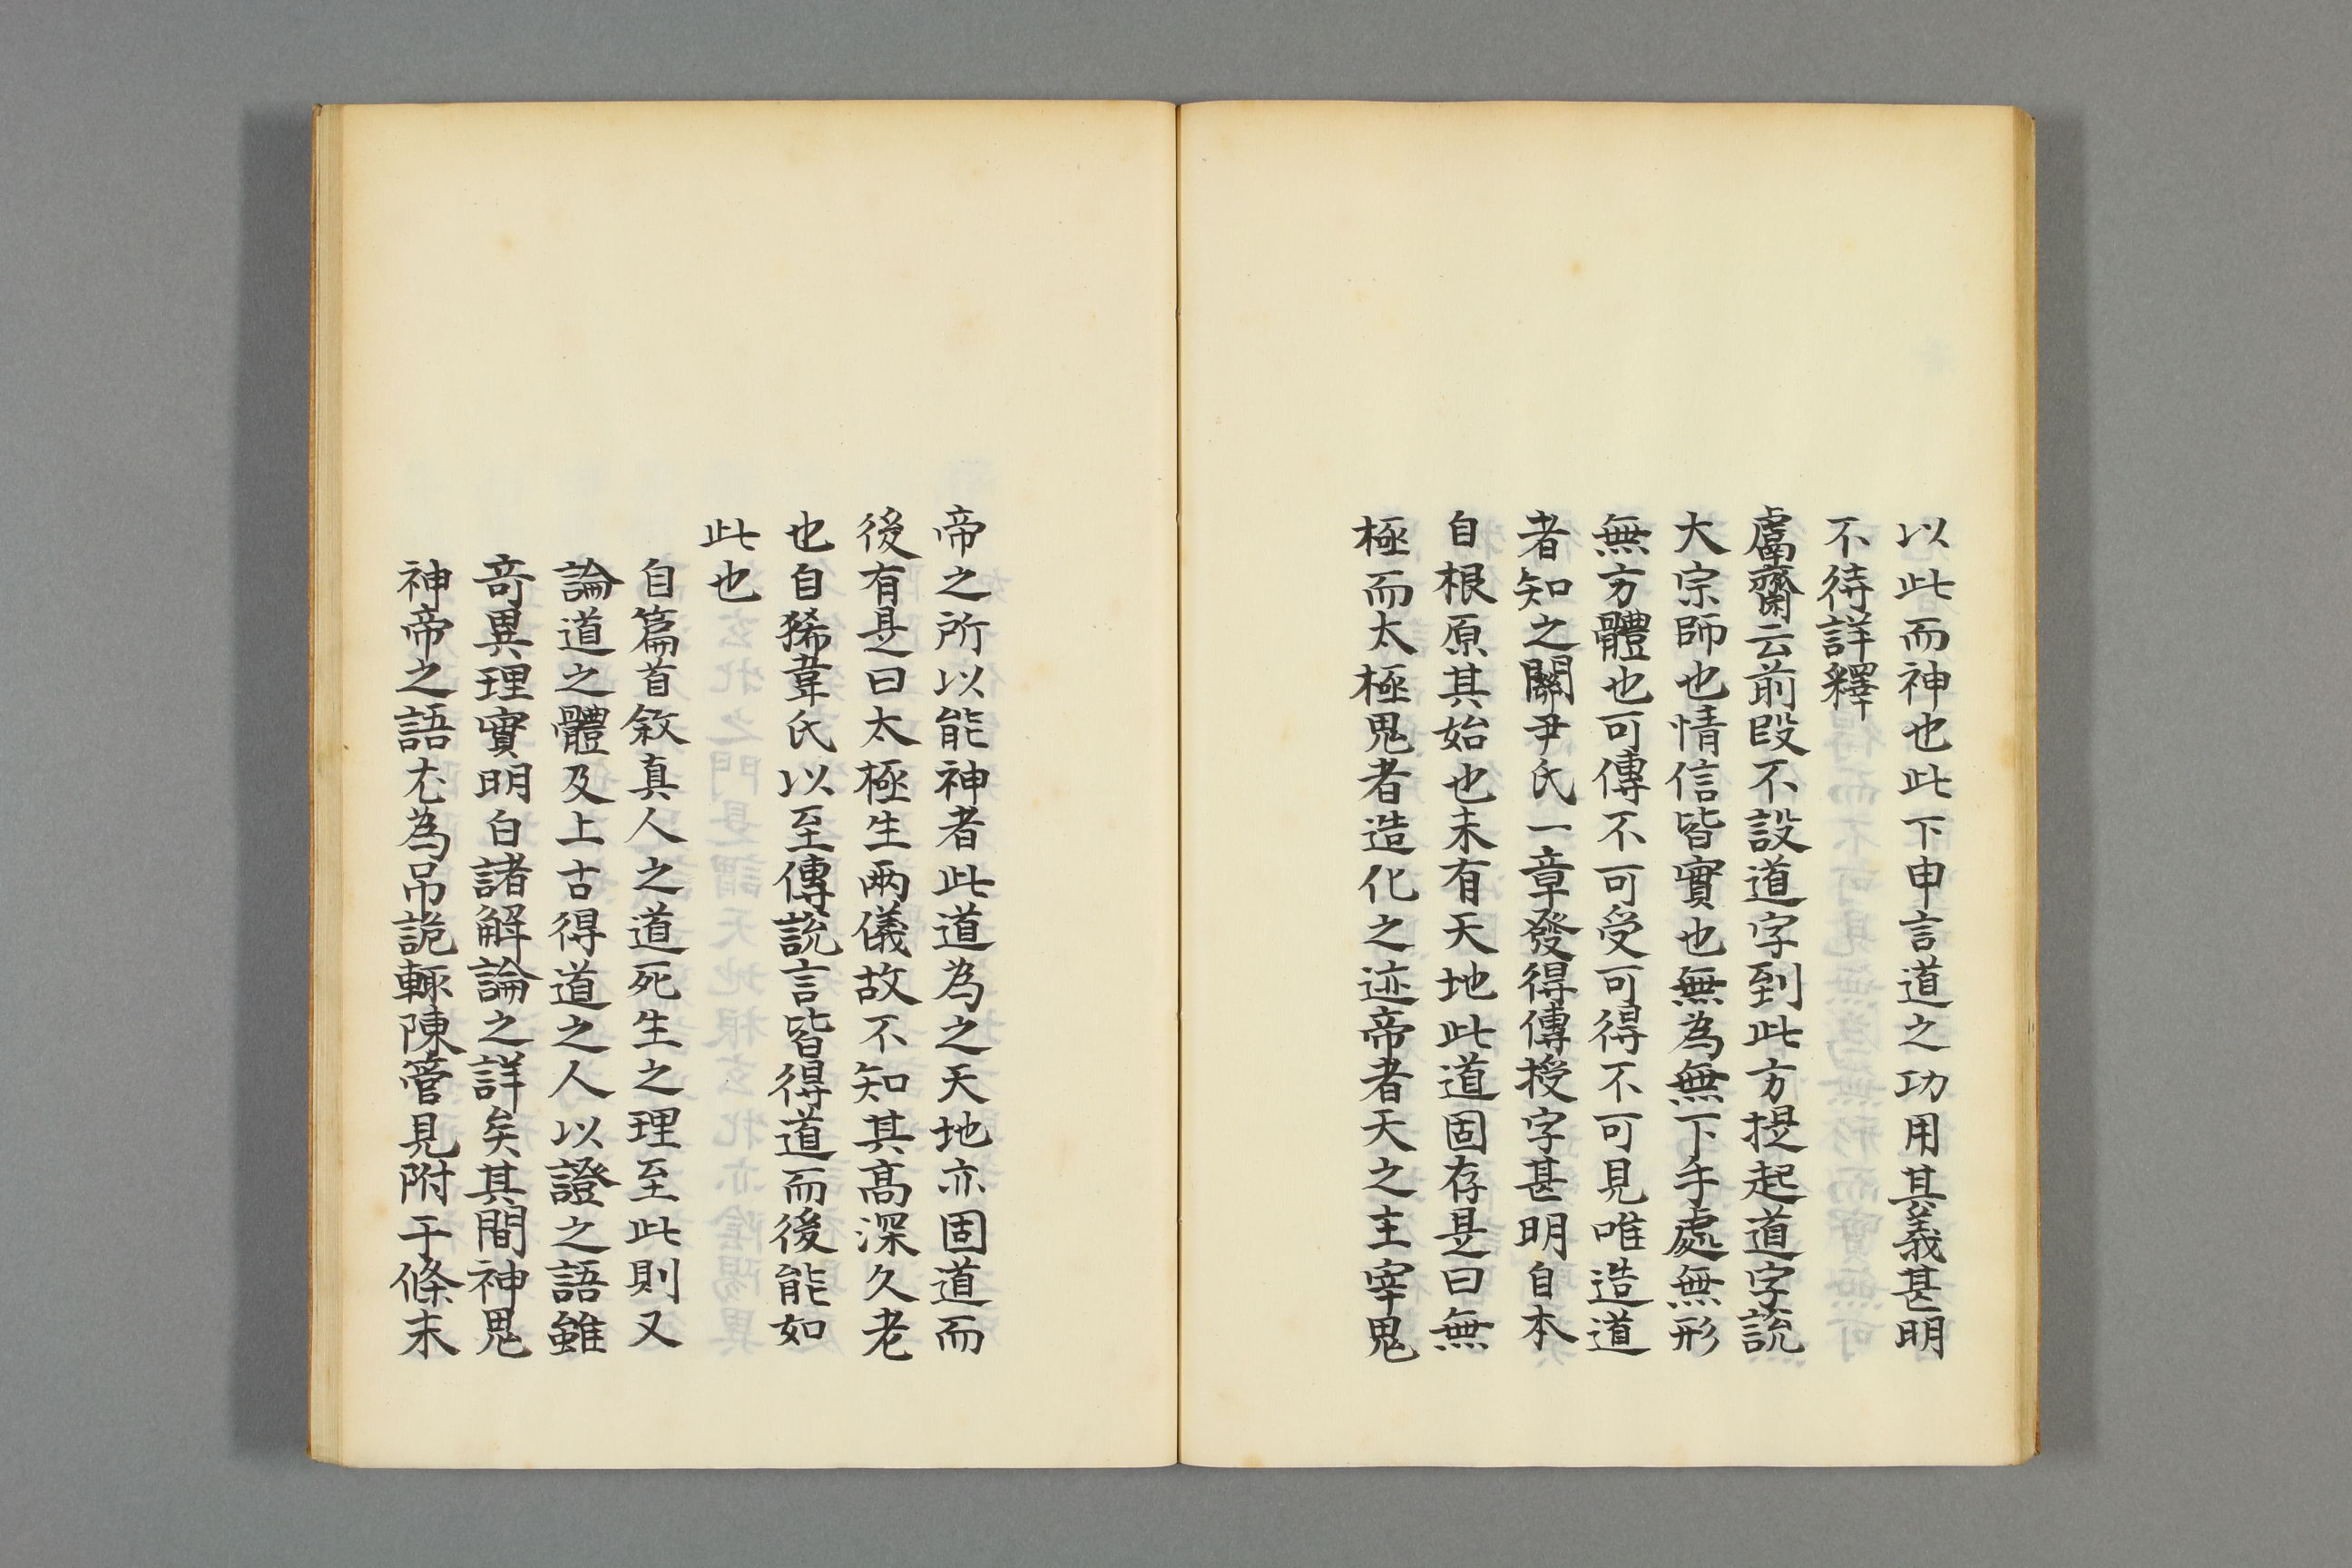 以此而神也此下申言道之功用其義甚明
不待詳釋
鬳齋云前段不設道字到此方提起道字說
大宗師也情信皆實也無為無下手處無形
無方體也可傳不可受可得不可見唯造道
者知之關尹氏一章發得傳授字甚明自本
自根原其始也未有天地此道固存是曰無
極而太極鬼者造化之迹帝者天之主宰鬼
帝之所以能神者此道為之天地亦固道而
後有是曰太極生兩儀故不知其高深久老
也自豨韋氏以至傅說言皆得道而後能如
此也
自篇首敘真人之道死生之理至此則又
論道之體及上古得道之人以證之語雖
竒異理實明白諸解論之詳矣其間神鬼
神帝之語尤為吊詭輒陳管見附于條末